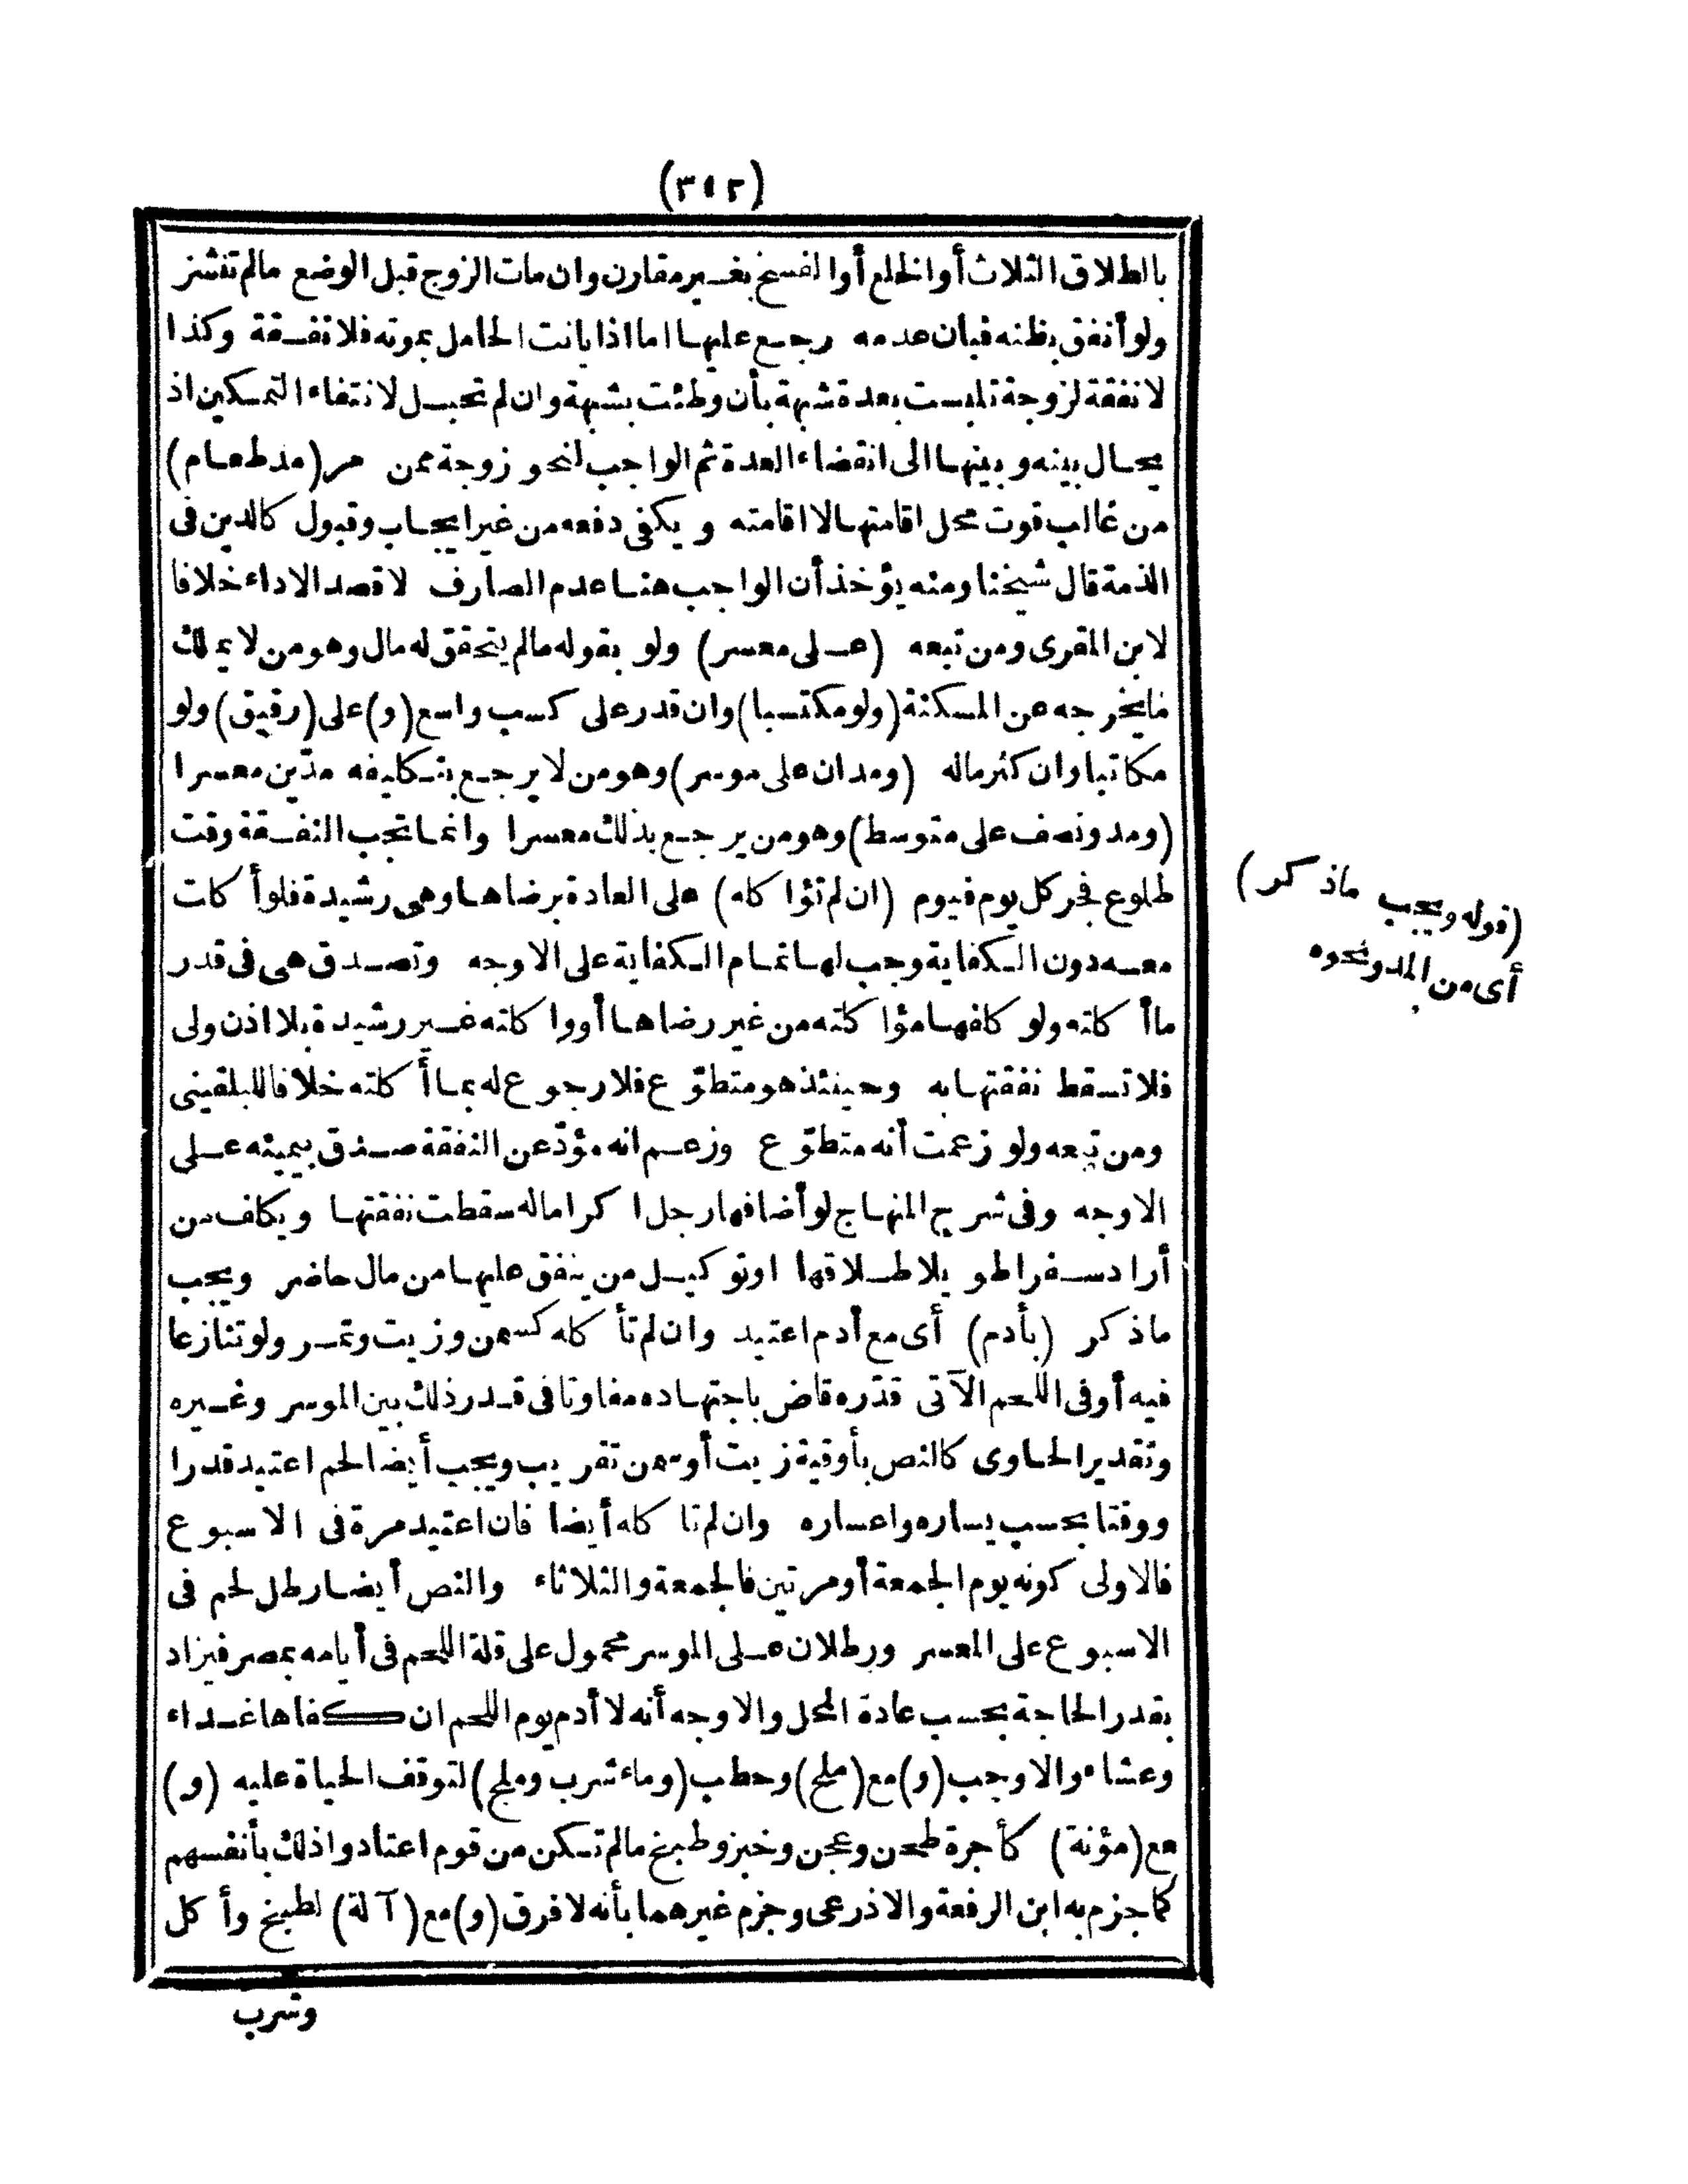 (٣١٢)
بالطلاق الثلاث أوالخلع أوالفسخ بغير مقارن وان مات الزوج قبل الوضع مالم تنشز
ولو أنفق بظنه فبان عدمه رجع عليها اما اذا بانت الحامل بموته فلا نفقة وكذا
لا نفقة لزوجة تلبست بعدة شبهة بأن وطئت بشبهة وان لم تحبل لانتفاء التمكين اذ
يحال بينه وبينها الى انقضاء العدة ثم الواجب لنحو زوجة ممن مر (مد طعام)
من غالب قوت محل اقامتها لا اقامته ويكفى دفعه من غير ايجاب وقبول كالدين فى
الذمة قال شيخنا ومنه يؤخذ أن الواجب هنا عدم الصارف لا قصد الاداء خلافا
لابن المقرى ومن تبعه (على معسر) ولو بقوله مالم يتحقق له مال وهو من لا يملك
ما يخرجه عن المسكنة (ولو مكتسبا) وان قدر على كسب واسع (و) على (رقيق) ولو
مكاتبا وان كثر ماله (ومدان على موسر) وهو من لا يرجع بتكليفه مدّين معسرا
(ومد ونصف على متوسط) وهو من يرجع بذلك معسرا وانما تجب النفقة وقت
طلوع فجر كل يوم فيوم (ان لم تؤاكله) على العادة برضاها وهى رشيدة فلو أكلت
معه دون الكفاية وجب لها تمام الكفاية على الاوجه وتصدق هى فى قدر
ما أكلته ولو كلفها مؤاكلته من غير رضاها أو واكلته غير رشيدة بلا اذن ولى
فلا تسقط نفقتها به وحينئذ هو متطوّع فلا رجوع له بما أكلته خلافا للبلقينى
ومن تبعه ولو زعمت أنه متطوّع وزعم انه مؤدّ عن النفقة صدق بيمينه على
الاوجه وفى شرح المنهاج لو أضافها رجل اكراما له سقطت نفقتها ويكلف من
أراد سفرا طويلا طلاقها او توكيل من ينفق عليها من مال حاضر ويجب
ماذكر (بأدم) أى مع أدم اعتيد وان لم تأكله كسمن وزيت وتمر ولو تنازعا
فيه أو فى اللحم الآتى قدّره قاض باجتهاده مفاوتا فى قدر ذلك بين الموسر وغيره
وتقدير الحاوى كالنص بأوقية زيت أو سمن تقريب ويجب أيضا لحم اعتيد قدرا
ووقتا بحسب يساره واعساره وان لم تاكله أيضا فان اعتيد مرة فى الاسبوع
فالاولى كونه يوم الجمعة أو مرتين فالجمعة والثلاثاء والنص أيضا رطل لحم فى
الاسبوع على المعسر ورطلان على الموسر محمول على قلة اللحم فى أيامه بمصر فيزاد
بقدر الحاجة بحسب عادة المحل والاوجه أنه لا أدم يوم اللحم ان كفاها غداء
وعشاء والا وجب (و) مع (ملح) وحطب (وماء شرب وملح) لتوقف الحياة عليه (و)
مع (مؤنة) كأجرة طحن وعجن وخبز وطبخ مالم تكن من قوم اعتادوا ذلك بأنفسهم
كما جزم به ابن الرفعة والاذرعى وجزم غيرهما بأنه لا فرق (و) مع (آلة) لطبخ وأكل
وشرب
(قوله ويجب ماذكر)
أى من المد ونحوه